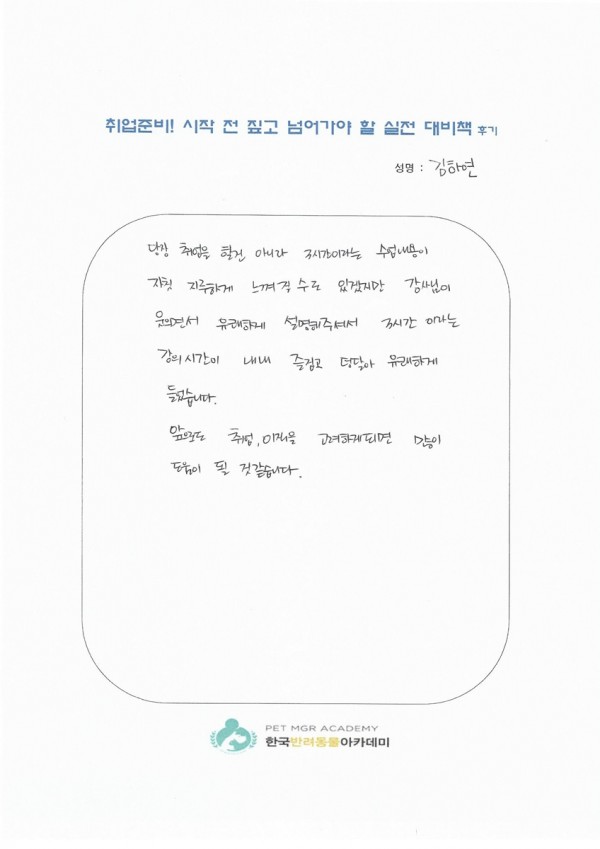 취업준비! 시작 전 짚고 넘어가야 할 실전 대비책 후기
성명 : 김하연
당장 취업을 할건 아니라 3시간이라는 수업내용이
자칫 지루하게 느껴질 수도 있겠지만 강사님이
웃으면서 유쾌하게 설명해주셔서 3시간 이라는
강의시간이 내내 즐겁고 덩달아 유쾌하게
들었습니다.
앞으로도 취업, 이직을 고려하게되면 많이
도움이 될 것같습니다.
PET MGR ACADEMY
한국반려동물아카데미